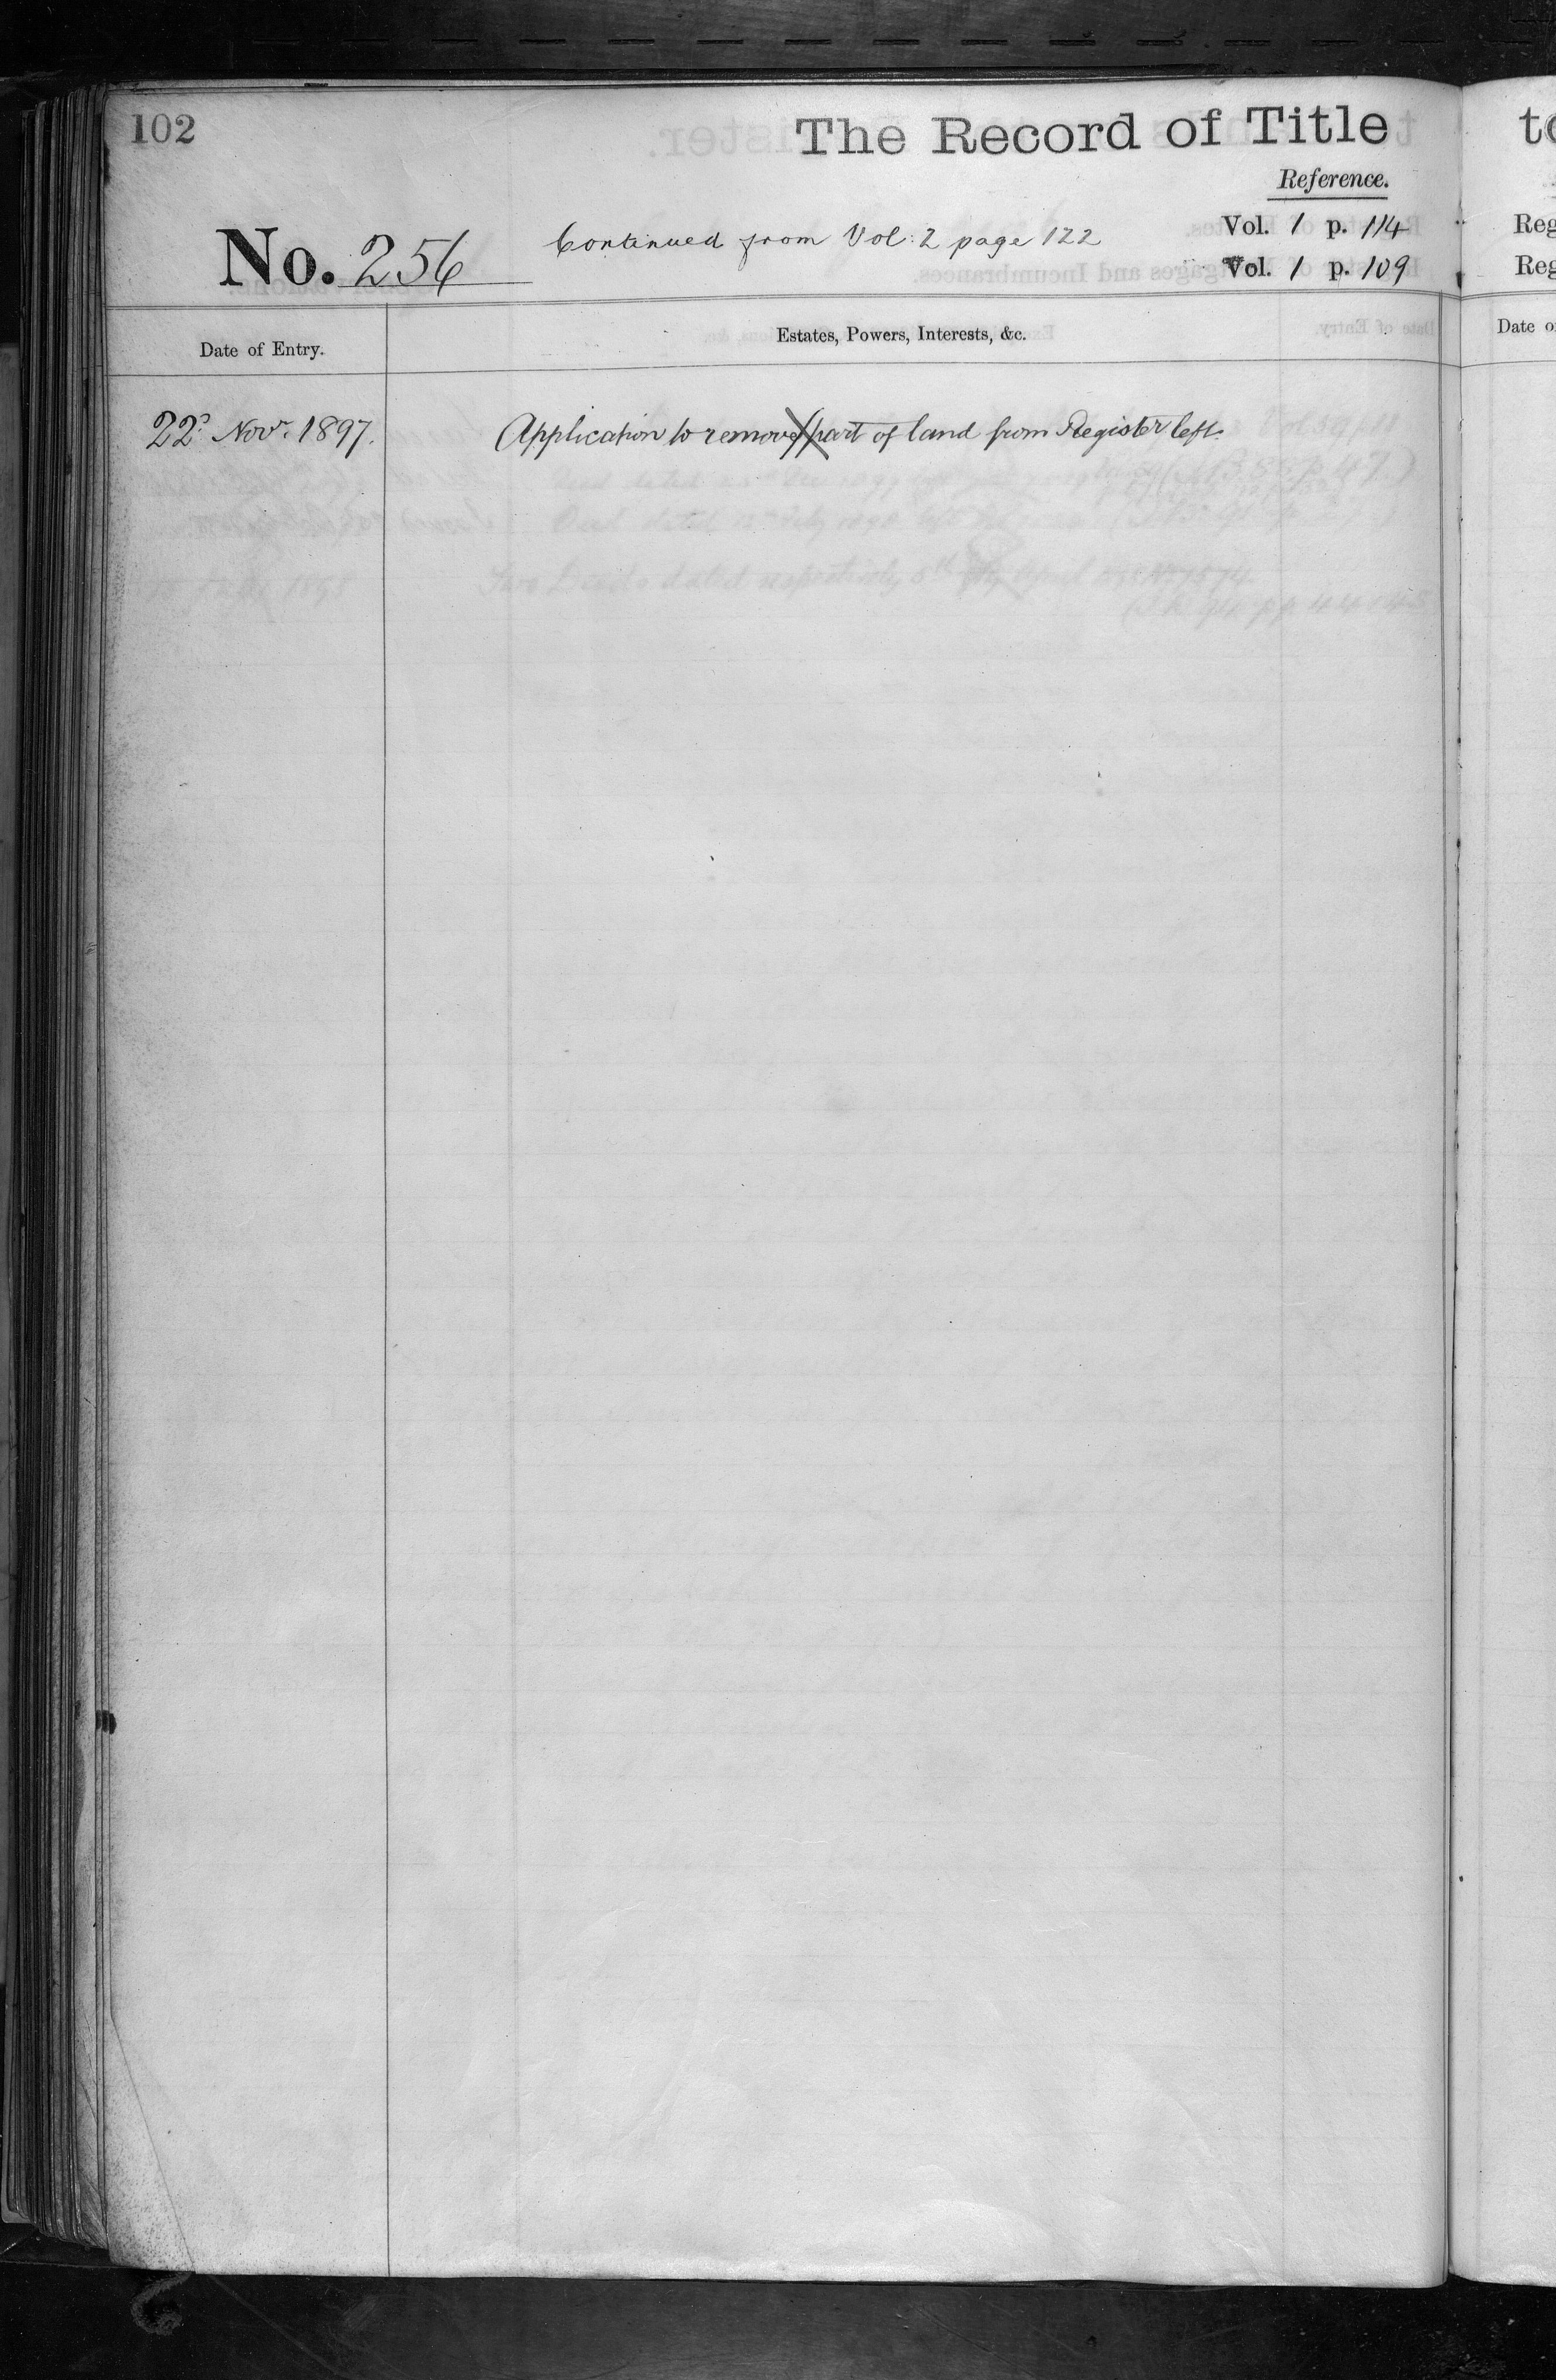 102
The Record of Title
Reference.
No. 256
Continued from Vol. 2 page 122
Vol. 1 p. 114
Vol. 1 p. 109
Date of Entry.
Estates, Powers, Interests, &c.
22d Novr. 1897.
Application to remove part of land from Register left.
to
Reg
Reg
Date o